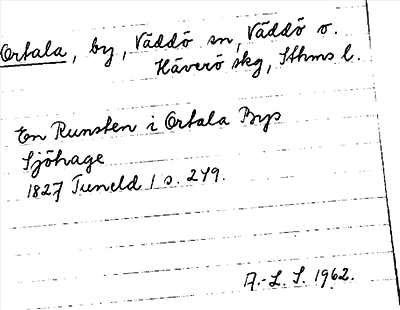 Ortala, by, Väddö sn, Väddö o.
Häverö skg, Sthms l.
En Runsten i Ortala Bys
Sjöhage
1827 Tuneld 1 s. 249.
A.-L. S. 1962.